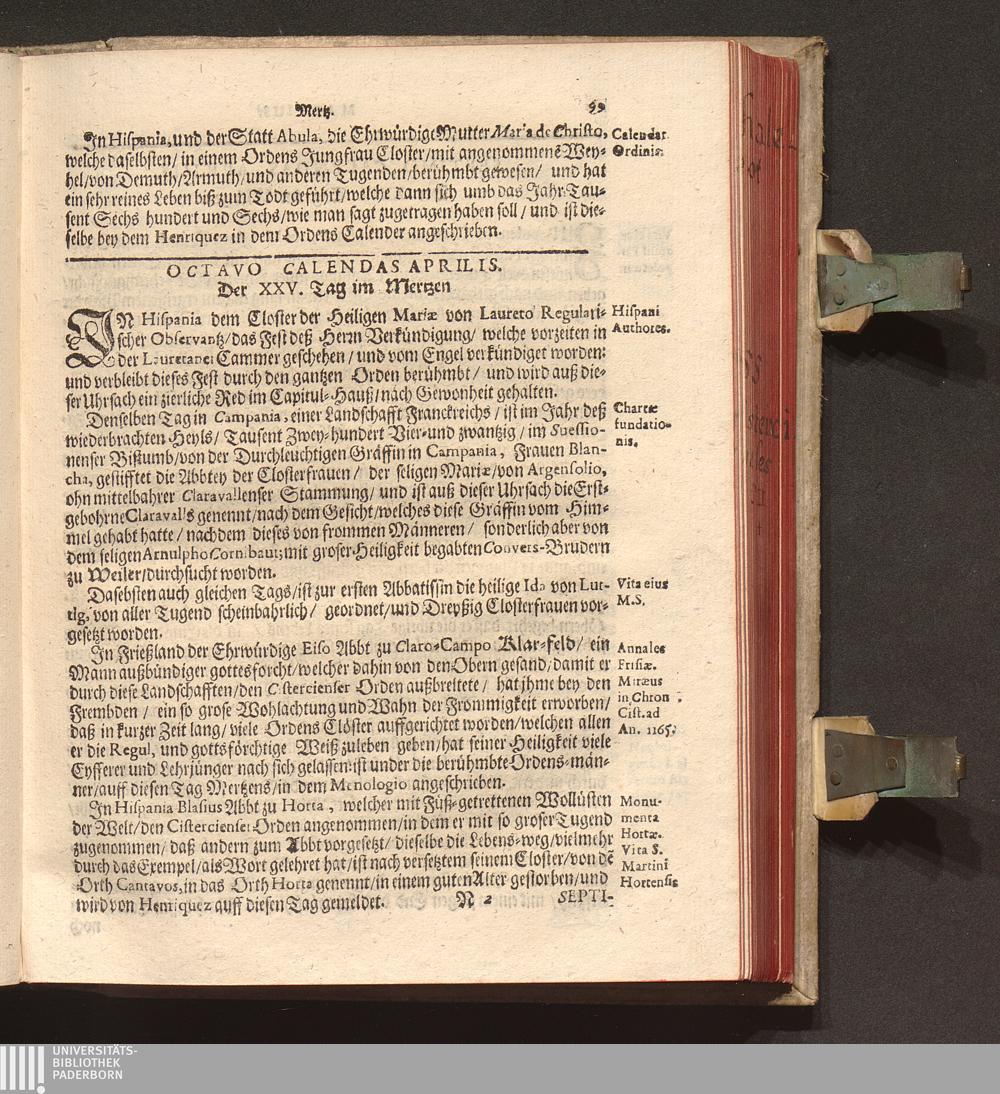 Mertz. 99
In Hispania, und der Statt Abula, die Ehrwürdige Mutter Maria de Christo,
welche daselbsten/ in einem Ordens Jungfrau Closter/mit angenommenē Wey-
hel/von Demuth/Armuth/und anderen Tugenden/berühmbt gewesen/ und hat
ein sehr reines Leben biß zum Todt geführt/welche dann sich umb das Jahr Tau-
sent Sechs hundert und Sechs/wie man sagt zugetragen haben soll/und ist die-
selbe bey dem Henriquez in dem Ordens Calender angeschrieben.
Calendar
Ordinis.
OCTAVO CALENDAS APRILIS.
Der XXV. Tag im Mertzen
IN Hispania dem Closter der Heiligen Mariæ von Laureto Regulari-
scher Observantz/das Fest deß Herrn Verkündigung/ welche vorzeiten in
der Lauretaner Cammer geschehen/und vom Engel verkündiget worden:
und verbleibt dieses Fest durch den gantzen Orden berühmbt/ und wird auß die-
ser Uhrsach ein zierliche Red im Capitul-Hauß/nach Gewonheit gehalten.
Hispani
Authores.
Denselben Tag in Campania, einer Landschafft Franckreichs/ist im Jahr deß
wiederbrachten Heyls/ Tausent Zwey-hundert Vier-und zwantzig/im Suessio-
nenser Bistumb/von der Durchleuchtigen Gräffin in Campania, Frauen Blan-
cha, gestifftet die Abbtey der Closterfrauen/ der seligen Mariæ/von Argensolio,
ohnmittelbahrer Claravallenser Stammung/ und ist auß dieser Uhrsach die Erst-
gebohrne Clarævall's genennt/nach dem Gesicht/welches diese Gräffin vom Him-
mel gehabt hatte/nach dem dieses von frommen Männeren/ sonderlich aber von
dem seligen Arnulpho Cornibautz mit groser Heiligkeit begabten Convers-Brudern
zu Weiler/durchsucht worden.
Chartæ
fundatio-
nis.
Dasebsten auch gleichen Tags/ist zur ersten Abbatissin die heilige Ida von Lut-
tig, von aller Tugend scheinbahrlich/ geordnet/und Dreyßig Closterfrauen vor-
gesetzt worden.
Vita eius
M.S.
In Frießland der Ehrwürdige Eiso Abbt zu Claro-Campo Klar-feld/ ein
Mann außbündiger gottesforcht/welcher dahin von den Obern gesand/damit er
durch diese Landschafften/den Cistercienser Orden außbreitete/ hat jhme bey den
Frembden/ ein so grose Wohlachtung und Wahn der Frommigkeit erworben/
daß in kurzer Zeit lang/viele Ordens Clöster auffgerichtet worden/welchen allen
er die Regul, und gottsförchtige Weiß zuleben geben/hat seiner Heiligkeit viele
Eyfferer und Lehrjünger nach sich gelassen: ist under die berühmbte Ordens-män-
ner/auff diesen Tag Mertzens/in dem Menologio angeschrieben.
Annales
Frisiæ.
Miræus
in Chron.
Cist. ad
An. 1165.
In Hispania Blasius Abbt zu Horta, welcher mit Füß-getrettenen Wollüsten
der Welt/den Cistercienser-Orden angenommen/in dem er mit so groser Tugend
zugenommen/ daß andern zum Abbt vorgesetzt/dieselbe die Lebens-weg/vielmehr
durch das Exempel/als Wort gelehret hat/ist nach versetztem seinem Closter/von dē
Orth Cantavos, in das Orth Horta genennt/in einem guten Alter gestorben/und
wird von Henriquez auff diesen Tag gemeldet.
Monu-
menta
Hortæ.
Vita S.
Martini
Hortensis
N 2 SEPTI-
UNIVERSITÄTS-
BIBLIOTHEK
PADERBORN